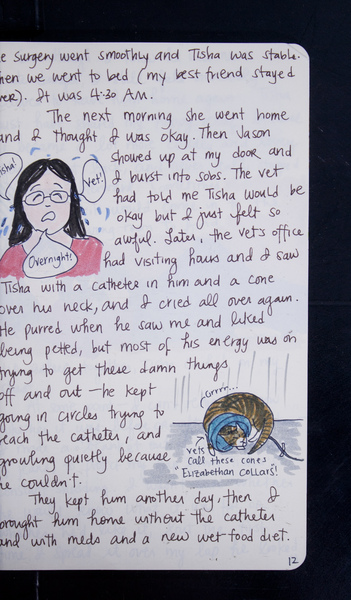 e surgery went smoothly and Tisha was stable.
hen we went to bed (my best friend stayed
ver). It was 4:30 AM.
The next morning she went home
and I thought I was okay. Then Jason
showed up at my door and
I burst into sobs. The vet
had told me Tisha would be
okay but I just felt so
awful. Later, the vet's office
had visiting hours and I saw
isha!
Vet!
Overnight!
Tisha with a catheter in him and a cone
over his neck, and I cried all over again.
He purred when he saw me and liked
being petted, but most of his energy was on
trying to get these damn things
off and out — he kept
going in circles trying to
reach the catheter, and
growling quietly because
he couldn't.
Grrrr...
vets
call these cones
"Elizabethan collars!"
They kept him another day, then I
brought him home without the catheter
and with meds and a new wet-food diet.
12